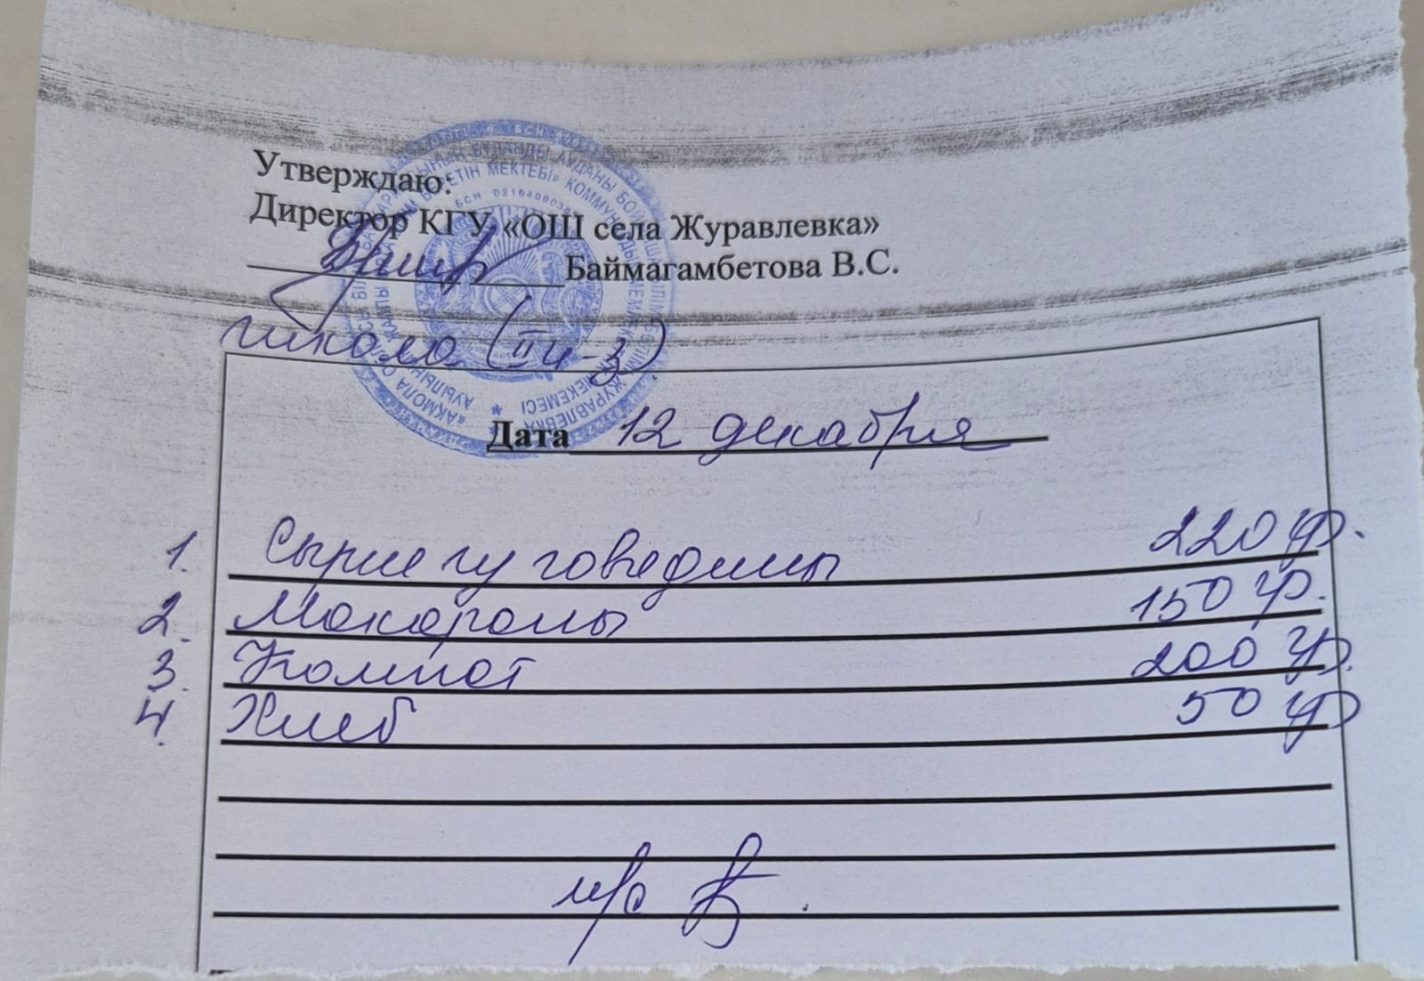 Утверждаю:
Директор КГУ «ОШ села Журавлевка»
Баймагамбетова В.С.
школа (II н-з)
Дата 12 декабря
1. говедины 220 гр.
2. Макароны 150 гр.
3. Компот 200 гр.
4. Хлеб 50 гр
м/с